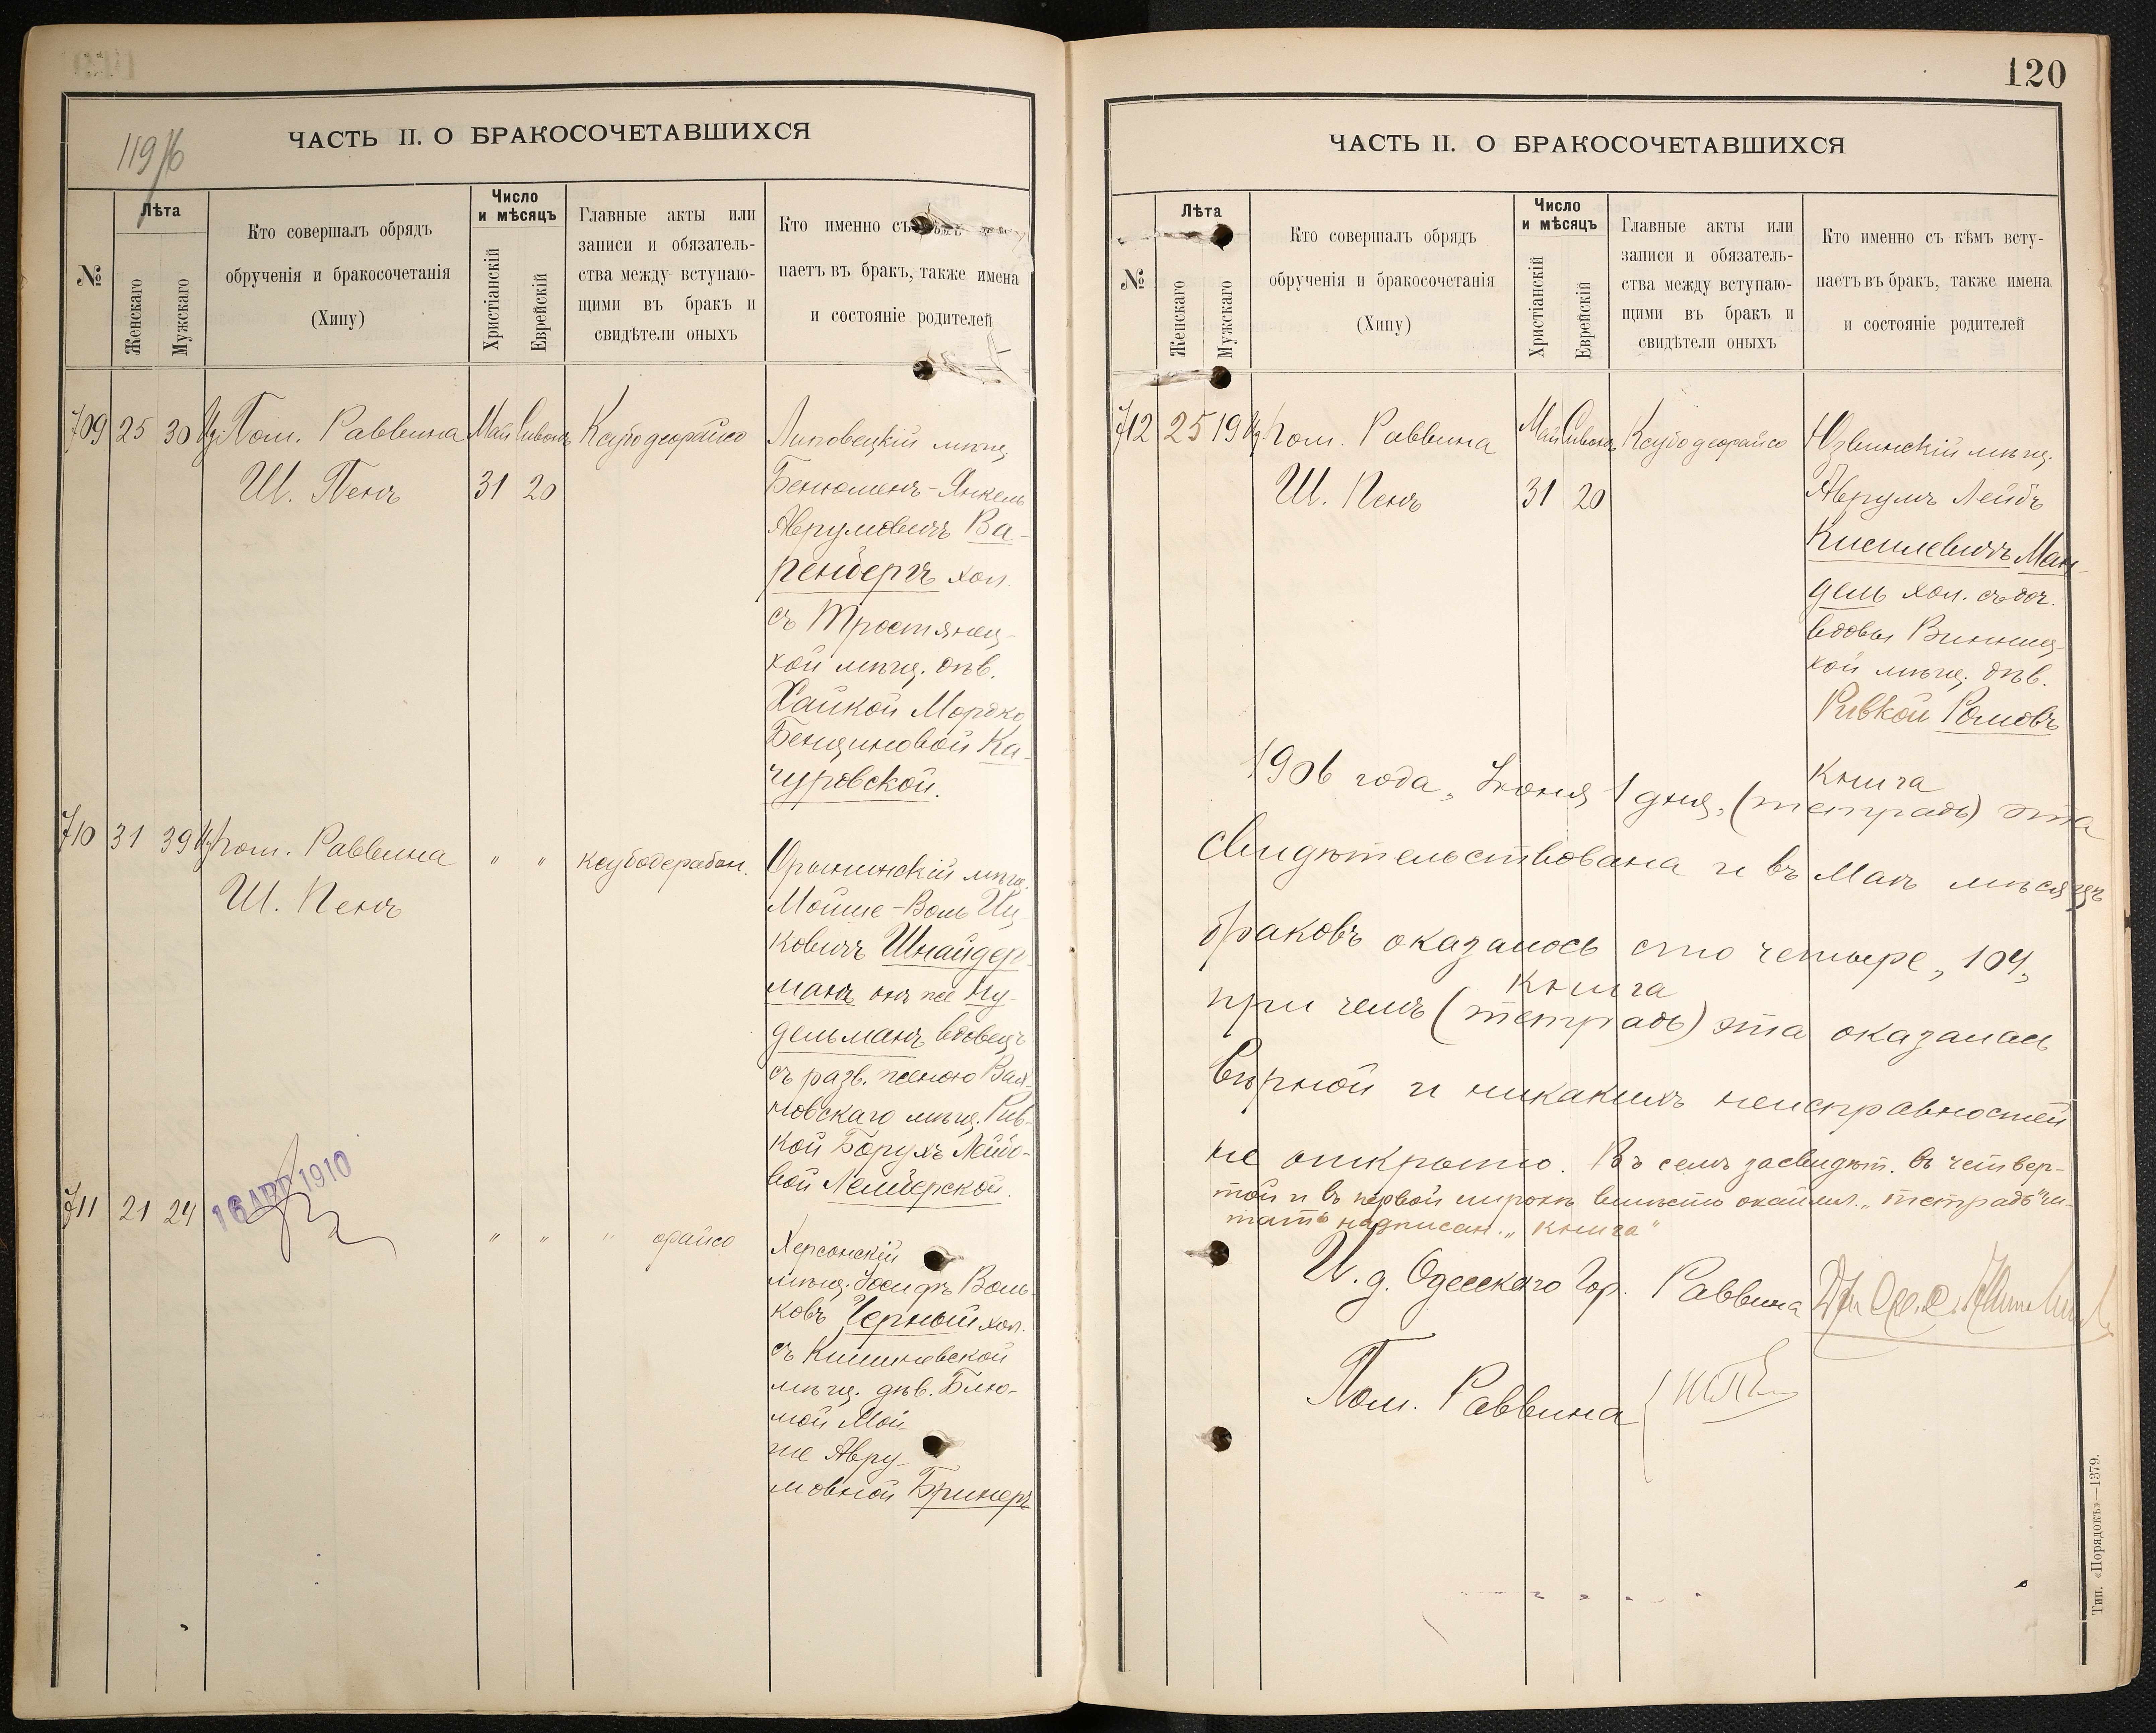 119/б
ЧАСТЬ II. О БРАКОСОЧЕТАВШИХСЯ
№
Лѣта
Женскаго
Мужскаго
Кто совершалъ обрядъ
обрученія и бракосочетанія
(Хипу)
Число
и мѣсяцъ
Христіанскій
Еврейскій
Главные акты или
записи и обязатель-
ства между вступаю-
щими въ бракъ и
свидѣтели оныхъ
Кто именно съ
паетъ въ бракъ, также имена
и состояніе родителей
709 25 30 Пом. Раввина Май Сивонъ
Ш. Пенъ 31 20
Липовецкій мѣщ.
Бенюменъ-Янкель
Аврумовичъ Ва-
ренбергъ хол.
съ Тростянец-
кой мѣщ. дѣв.
Хайкой Мордко
Бенциновой Ка-
чуровской.
710 31 39 Пом. Раввина " "
Ш. Пенъ
мѣщ.
Мойше-Воль Иц-
ковичъ Шнайдер-
манъ онъ же Ну-
дельманъ вдовецъ
съ разв. женою
мѣщ. Рив-
кой Борухъ Лейбо-
вой
16 АПР 1910
711 21 24 " " "
Херсонскій
мѣщ. Іосифъ Воль-
ковъ Черный хол.
съ Кишиневской
мѣщ. дѣв. Блю-
мой Мой-
ше Авру-
мовной Бринеръ
120
ЧАСТЬ II. О БРАКОСОЧЕТАВШИХСЯ
№
Лѣта
Женскаго
Мужскаго
Кто совершалъ обрядъ
обрученія и бракосочетанія
(Хипу)
Число
и мѣсяцъ
Христіанскій
Еврейскій
Главные акты или
записи и обязатель-
ства между вступаю-
щими въ бракъ и
свидѣтели оныхъ
Кто именно съ кѣмъ всту-
паетъ въ бракъ, также имена
и состояніе родителей
712 25 19 Пом. Раввина Май Сивонъ
Ш. Пенъ 31 20
Юзвинскій мѣщ.
Аврумъ Лейбъ
Кисилевичъ Ман-
дель хол. съ доч.
вдовы Винниц-
кой мѣщ. дѣв.
Ривкой Ромовъ
книга
1906 года, Іюня 1 дня, (тетрадь) эта
свидѣтельствована и въ Маѣ мѣсяцѣ
браковъ оказалось сто четыре „104„
книга
при чемъ (тетрадь) эта оказалась
вѣрной и никакихъ неисправностей
не открыто. Въ семъ засвидѣт. въ четвер-
той и въ первой строкѣ вмѣсто окаймл. „тетрадь" чи-
тать надписан. „книга"
И. д. Одесскаго Гор. Раввина
Пом. Раввина
Тип. «Порядокъ»—1379.